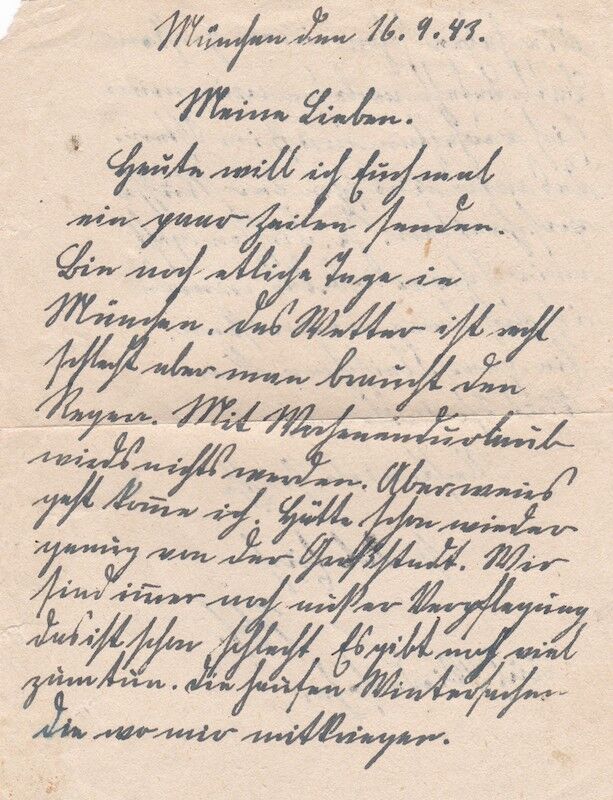 München den 16.9.43.
Meine Lieben.
Heute will ich Euch mal
ein paar Zeilen senden.
Bin noch etliche Tage in
München. Das Wetter ist recht
schlecht aber man braucht den
Regen. Mit Wochenendurlaub
wirds nichts werden. Aber wens
geht komme ich. Hätte schon wieder
genug von der Großstadt. Wir
sind immer noch außer Verpflegung
das ist schon schlecht Es gibt noch viel
zum tun. Die haufen Wintersachen
die wo wir mitkriegen.